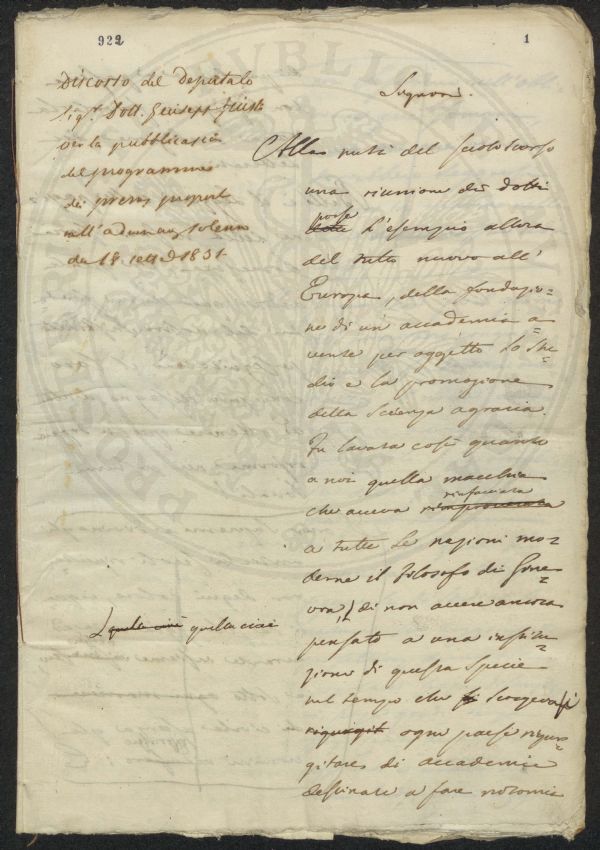 922
1
Discorso del Deputato
Sig.r Dott. Giusepp Giusti
per la pubblicazi
del programma
dei premj propost
nell'adunanz solenn
de 18. sett.e 1831.
Signori.
Alla metà del secolo scorso
una riunione di dotti
porse
dette l'esempio allora
del tutto nuovo all'
Europa, della fondazio=
ne di un'accademia a=
vente per oggetto lo stu=
dio e la promozione
della Scienza agraria.
Fu lavata così quanto
a noi quella macchia
rinfacciata
che aveva rimproverata
a tutte le nazioni mo=
derne il Filosofo di Gine=
vra, di non avere ancora
pensato a una istitu=
L quella cioè quella cioè
zione di questa specie
nel tempo che si scorgevasi
ogni paese rigur=
gitare di accademie
destinate a fare